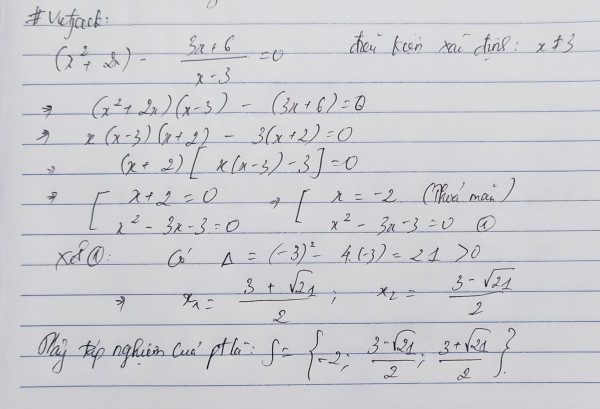 # Vietjack:
(x² + 2x) - \frac{3x+6}{x-3} = 0 điều kiện xác định: x ≠ 3
⇒ (x² + 2x)(x-3) - (3x+6) = 0
⇒ x(x-3)(x+2) - 3(x+2) = 0
⇒ (x+2)[x(x-3)-3] = 0
⇒ [ x+2 = 0 ⇒ [ x = -2 (Thoả mãn)
x² - 3x - 3 = 0 x² - 3x - 3 = 0 ①
Xét ①: Có Δ = (-3)² - 4.(-3) = 21 > 0
⇒ x₁ = \frac{3+√21}{2} ; x₂ = \frac{3-√21}{2}
Vậy tập nghiệm của pt là: S = {-2; \frac{3-√21}{2}; \frac{3+√21}{2}}.